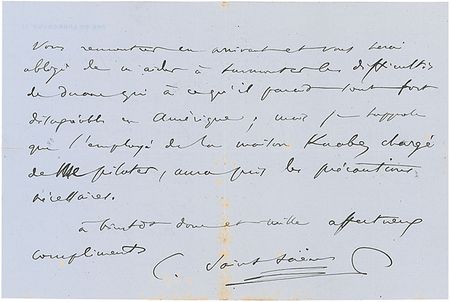 Vous rencontrer en arrivant et vous serai
obligé de m'aider à surmonter les difficultés
de douane qui à ce qu'il parait sont fort
désagréables en Amérique ; mais je suppose
que l'employé de la maison Knabe, chargé
de me piloter, aura pris les précautions
nécessaires.
à bientôt donc et mille affectueux
compliments
C. Saint-Saëns